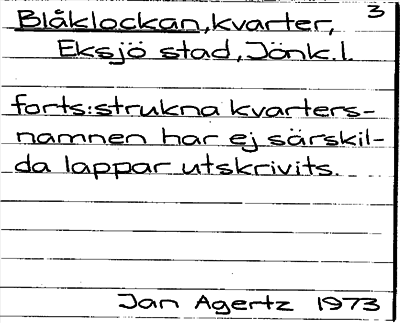 3
Blåklockan, kvarter,
Eksjö stad, Jönk. l.
forts: strukna kvarters-
namnen har ej särskil-
da lappar utskrivits.
Jan Agertz 1973